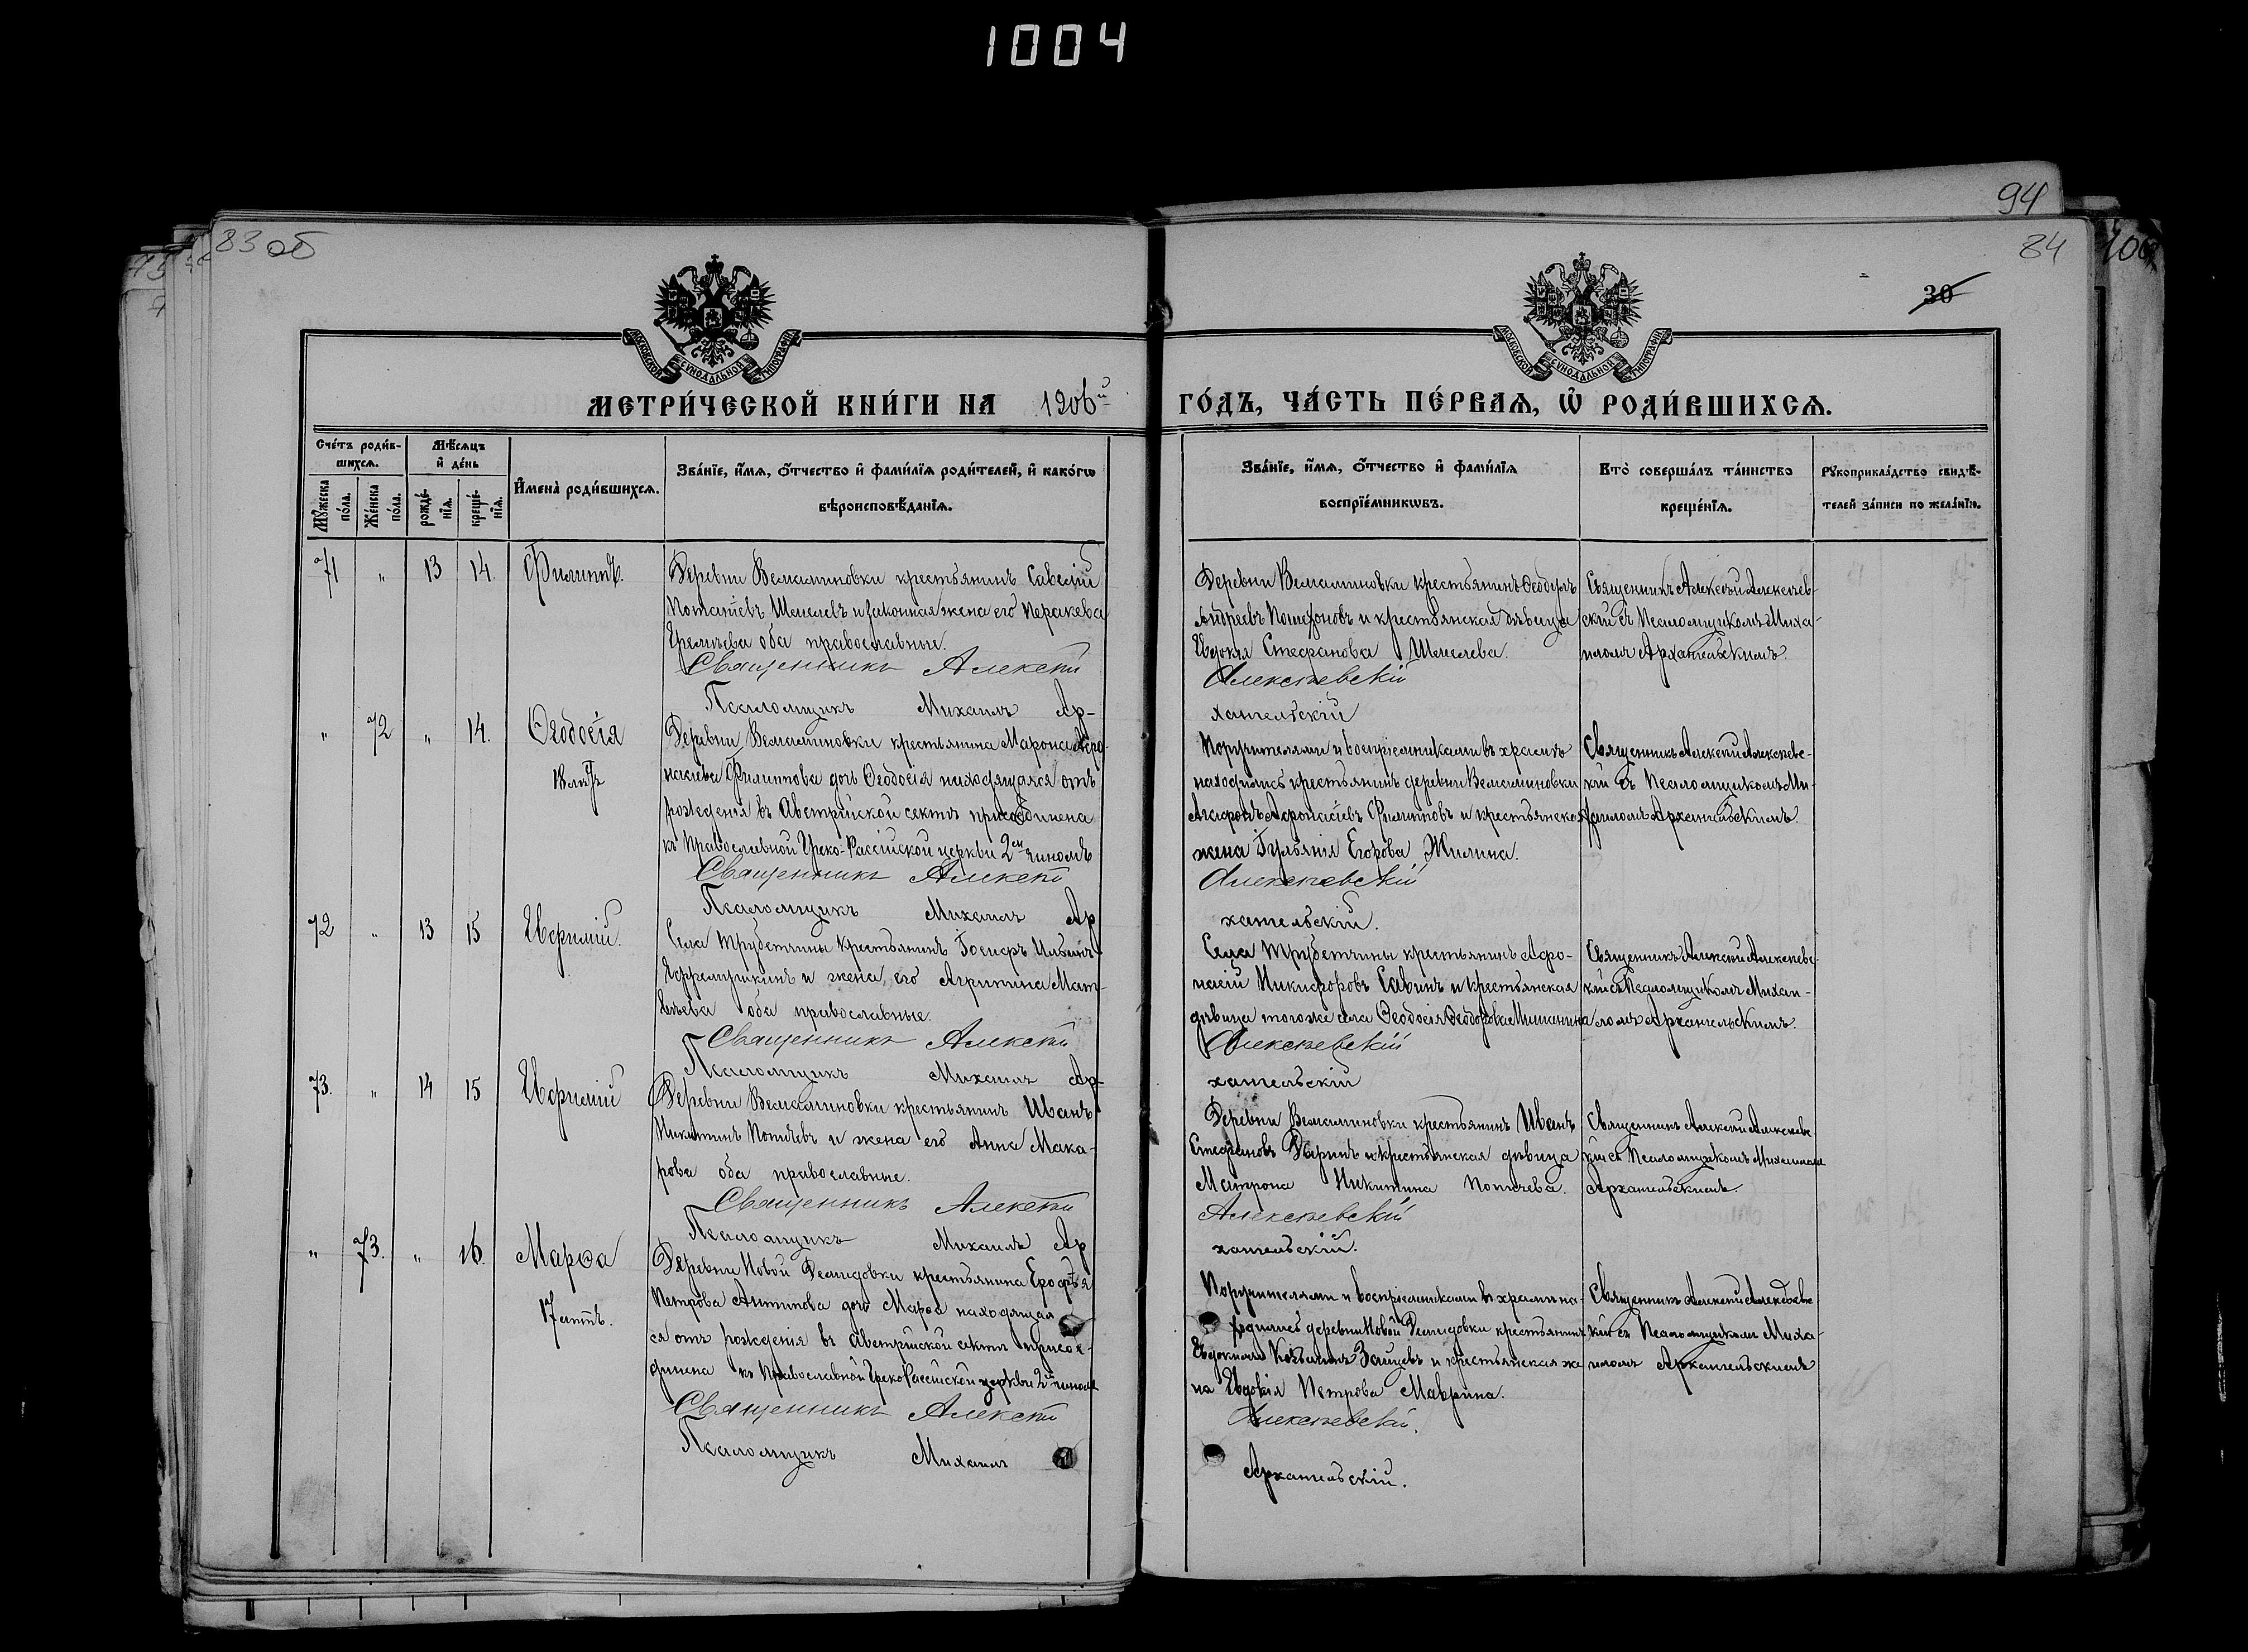 1004
94
83 об
84
100
30
МОСКОВСКОЙ СѴНОДАЛЬНОЙ ТИПОГРАФІИ
МОСКОВСКОЙ СѴНОДАЛЬНОЙ ТИПОГРАФІИ
МЕТРИ́ЧЕСКОЙ КНИ́ГИ НА 1906й ГО́ДЪ, ЧА́СТЬ ПЕ́РВАѦ, Ѡ РОДИ́ВШИХСѦ.
Сче́тъ роди́в-
шихсѧ.
Мѣ́сѧцъ
и҆ де́нь
Мꙋ́жеска
по́ла.
Же́нска
по́ла.
рожде́-
нїѧ.
креще́-
нїѧ.
И҆мена̀ роди́вшихсѧ.
Зва́нїе, и҆́мѧ, ѻ҆́тчество и҆ фами́лїѧ роди́телей, и҆ како́гѡ
вѣроисповѣ́данїѧ.
Зва́нїе, и҆́мѧ, ѻ҆́тчество и҆ фами́лїѧ
воспрїе́мникѡвъ.
Кто̀ соверша́лъ та́инство
креще́нїѧ.
Рꙋкоприкла́дство свидѣ́-
телей за́писи по жела́нїю.
71 " 13 14. Филиппъ.
Деревни Вельяминовки крестьянинъ Савелій
Шмелевъ и законная жена его Параскева
оба православные.
Священникъ Алексѣй
Псаломщикъ Михаилъ Ар-
Деревни Вельяминовки крестьянинъ Ѳеодоръ
Андреевъ и крестьянская дѣвица
Евдокія Стефанова Шмелева.
Алексѣевскій
хангельскій
Священникъ Алексѣй Алексѣев-
скій съ Псаломщикомъ Миха-
иломъ Архангельскимъ.
" 72 " 14. Ѳеодосія
18 лѣтъ
Деревни Вельяминовки крестьянина Марона Афо-
насьева Филиппова дочь Ѳеодосія находящаяся отъ
рожденія въ Австрійской сектѣ присоединена
къ Православной Греко-Россійской церкви 2мъ чиномъ
Священникъ Алексѣй
Псаломщикъ Михаилъ Ар
Поручителями и воспріемниками въ храмѣ
находились крестьянинъ деревни Вельяминовки
Агафонъ Афонасіевъ Филипповъ и крестьянская
жена Іульянія Егорова Жилина.
Алексѣевскій
хангельскій.
Священникъ Алексѣй Алексѣевс-
кій съ Псаломщикомъ Ми-
хаиломъ Архангельскимъ.
72 " 13 15 Евфимій.
Села Трубетчины крестьянинъ Іосифъ Ильинъ
Ефремушкинъ и жена его Агрипина Мат-
вѣева оба православные.
Священникъ Алексѣй
Псаломщикъ Михаилъ Ар-
Села Трубетчины крестьянинъ Афо-
насій Никифоровъ Савинъ и крестьянская
дѣвица того же села Ѳеодосія Ѳеодорова Мишанина
Алексѣевскій
хангельскій
Священникъ Алексѣй Алексѣевс-
кій съ Псаломщикомъ Михаи-
ломъ Архангельскимъ.
73. " 14 15 Евфимій
Деревни Вельяминовки крестьянинъ Иванъ
Никитинъ и жена его Анна Мака-
рова оба православные.
Священникъ Алексѣй
Псаломщикъ Михаилъ Ар
Деревни Вельяминовки крестьянинъ Иванъ
Стефановъ и крестьянская дѣвица
Матрона Никитина
Алексѣевскій
хангельскій.
Священникъ Алексѣй Алексѣевс
кій съ Псаломщикомъ Михаиломъ
Архангельскимъ.
" 73. " 16. Марѳа
17 лѣтъ.
Деревни Новой Демидовки крестьянина Ерофѣя
Петрова Антипова дочь Марѳа находящая
ся отъ рожденія въ Австрійской сектѣ присое-
динена къ Православной Греко Россійской церкви 2мъ чиномъ
Священникъ Алексѣй
Псаломщикъ Михаилъ
Поручителями и воспріемниками въ храмѣ на-
ходились деревни Новой Демидовки крестьянинъ
Евдокимъ Козьминъ Зайцевъ и крестьянская же
на Евдокія Петрова Маврина.
Алексѣевскій.
Архангельскій.
Священникъ Алексѣй Алексѣевс
кій съ Псаломщикомъ Миха-
иломъ Архангельскимъ